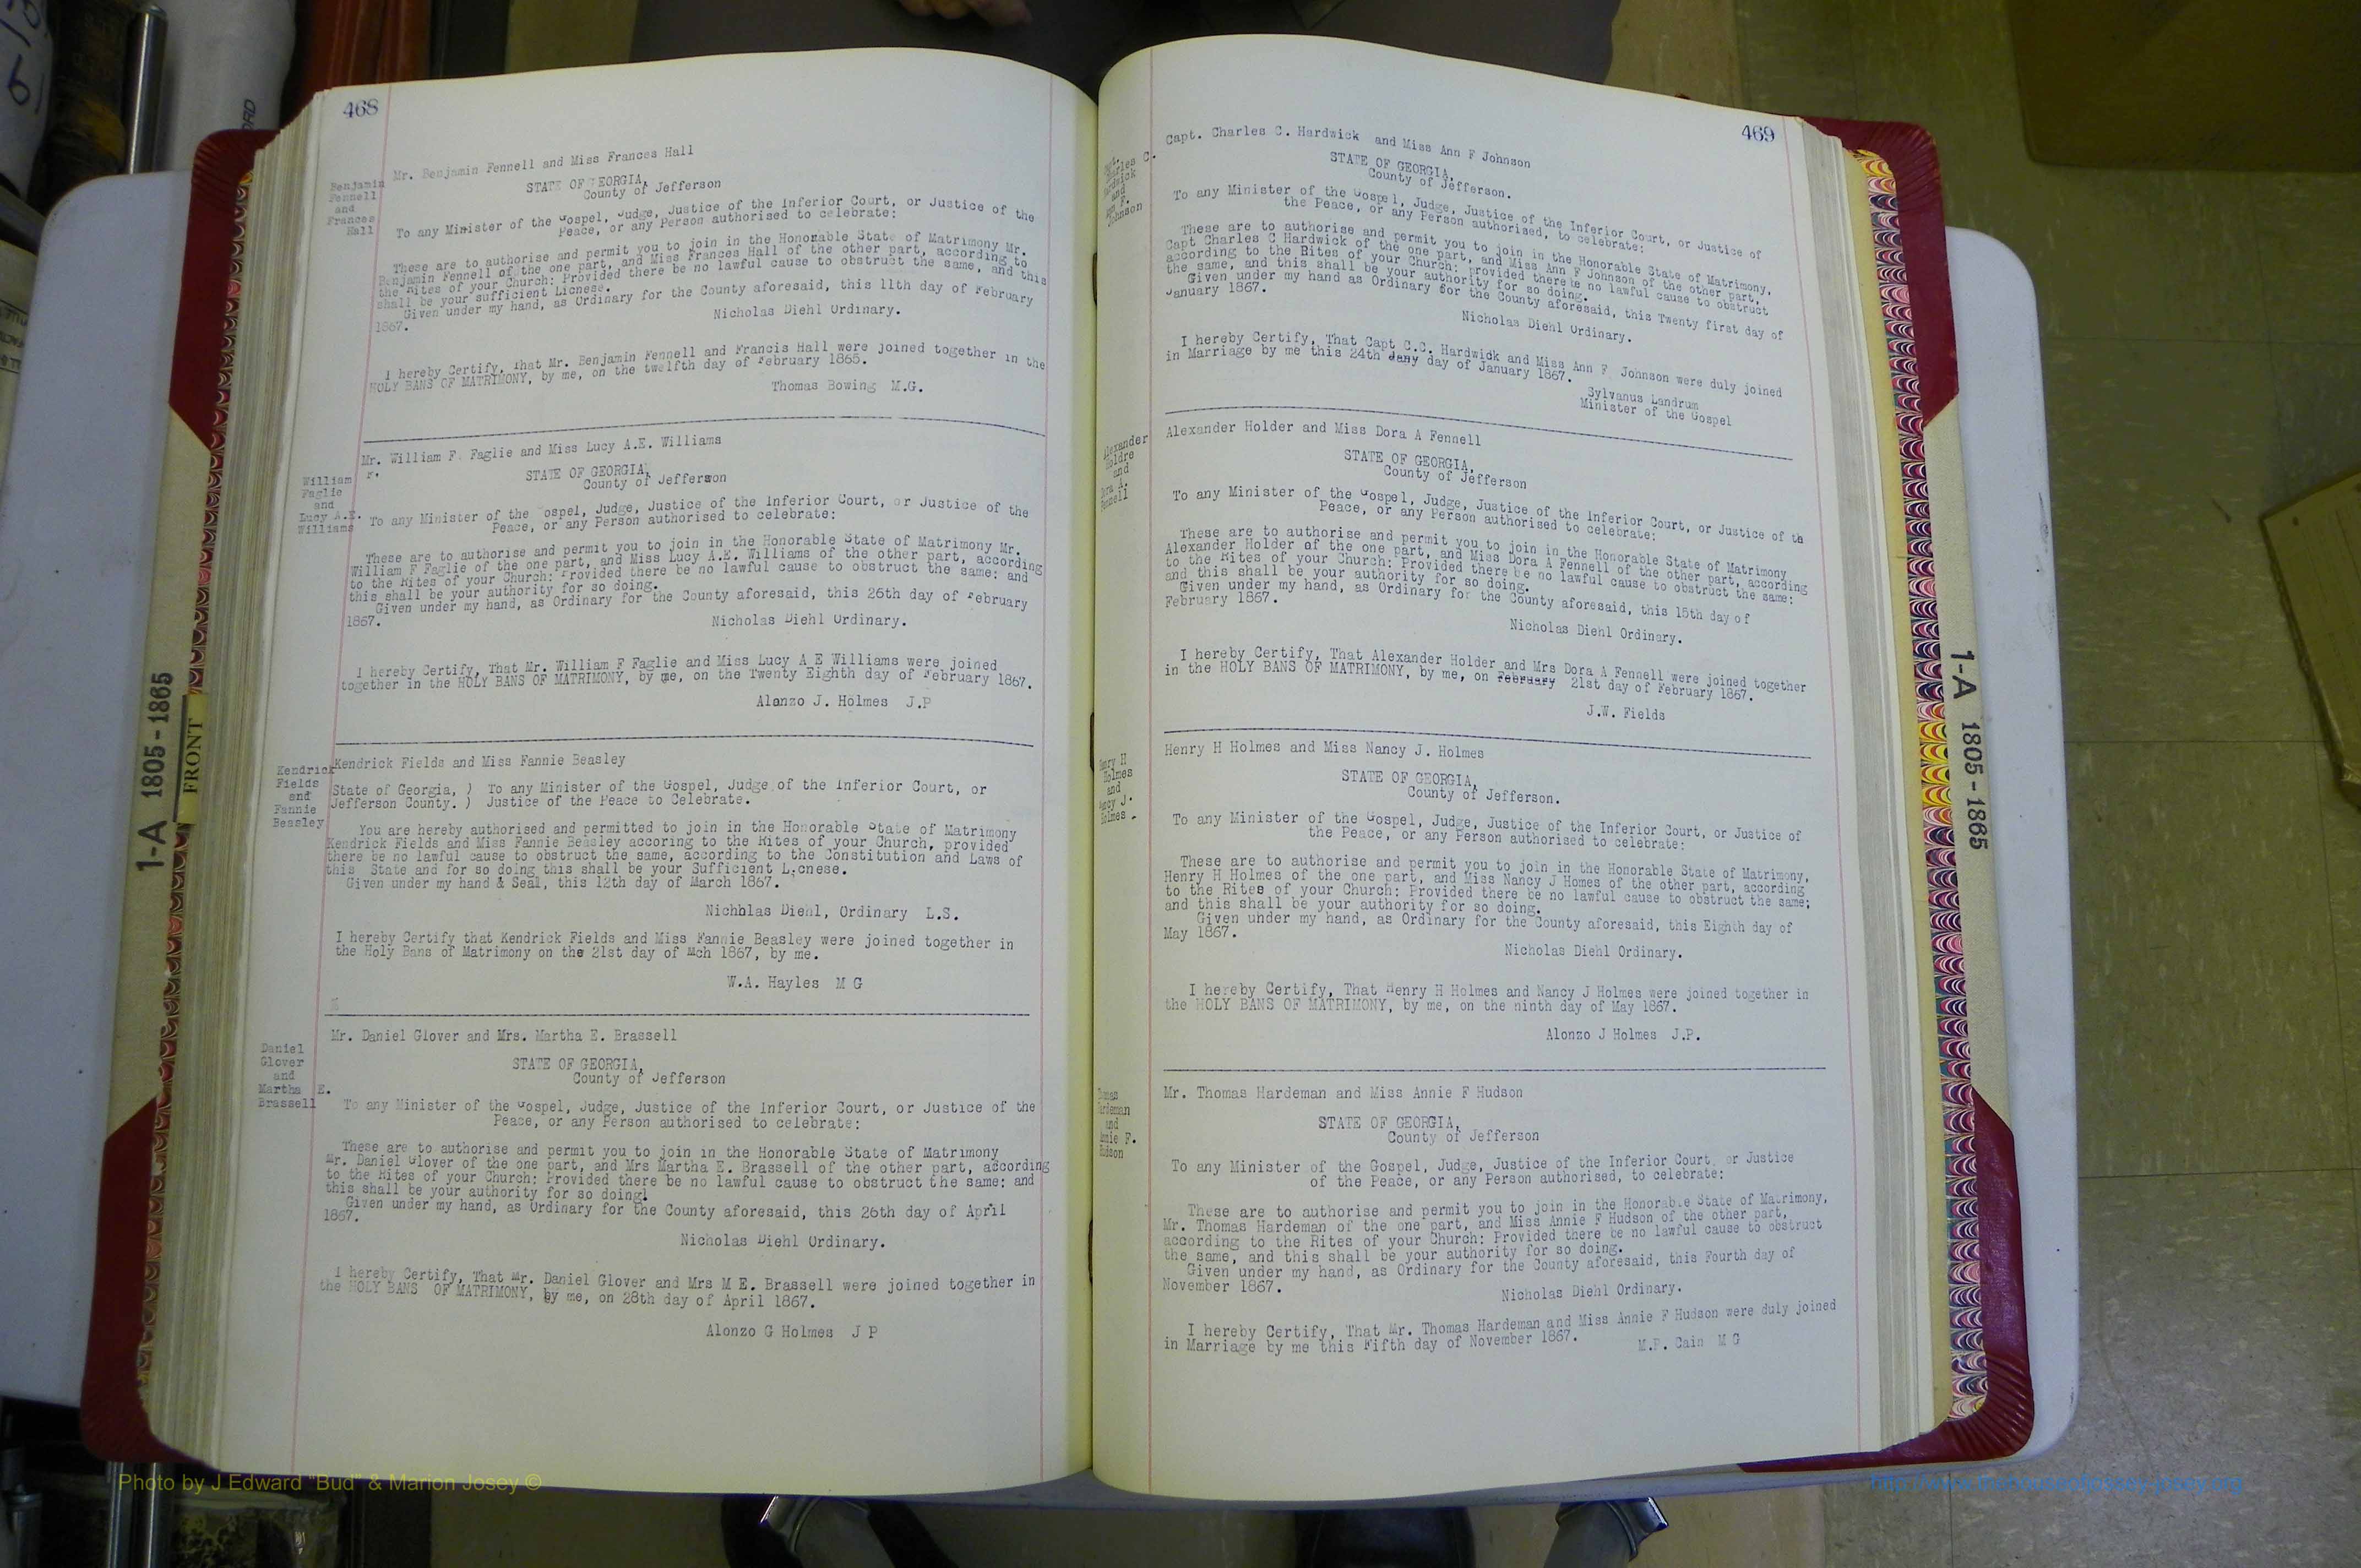 468
Mr. Benjamin Fennell and Miss Frances Hall
Benjamin
Fennell
and
Frances
Hall
STATE OF GEORGIA,
County of Jefferson
To any Minister of the Gospel, Judge, Justice of the Inferior Court, or Justice of the
Peace, or any Person authorised to celebrate:
These are to authorise and permit you to join in the Honorable State of Matrimony Mr.
Benjamin Fennell of the one part, and Miss Frances Hall of the other part, according to
the Rites of your Church: Provided there be no lawful cause to obstruct the same, and this
shall be your sufficient Licnese.
Given under my hand, as Ordinary for the County aforesaid, this 11th day of February
1867.
Nicholas Diehl Ordinary.
I hereby Certify, That Mr. Benjamin Fennell and Francis Hall were joined together in the
HOLY BANS OF MATRIMONY, by me, on the twelfth day of February 1865.
Thomas Bowing M.G.
Mr. William F. Faglie and Miss Lucy A.E. Williams
William F.
Faglie
and
Lucy A.E.
Williams
STATE OF GEORGIA,
County of Jefferson
To any Minister of the Gospel, Judge, Justice of the Inferior Court, or Justice of the
Peace, or any Person authorised to celebrate:
These are to authorise and permit you to join in the Honorable State of Matrimony Mr.
William F Faglie of the one part, and Miss Lucy A.E. Williams of the other part, according
to the Rites of your Church: Provided there be no lawful cause to obstruct the same: and
this shall be your authority for so doing.
Given under my hand, as Ordinary for the County aforesaid, this 26th day of February
1867.
Nicholas Diehl Ordinary.
I hereby Certify, That Mr. William F Faglie and Miss Lucy A E Williams were joined
together in the HOLY BANS OF MATRIMONY, by me, on the Twenty Eighth day of February 1867.
Alonzo J. Holmes J.P
Kendrick Fields and Miss Fannie Beasley
Kendrick
Fields
and
Fannie
Beasley
State of Georgia, ) To any Minister of the Gospel, Judge of the Inferior Court, or
Jefferson County. ) Justice of the Peace to Celebrate.
You are hereby authorised and permitted to join in the Honorable State of Matrimony
Kendrick Fields and Miss Fannie Beasley accoring to the Rites of your Church, provided
there be no lawful cause to obstruct the same, according to the Constitution and Laws of
this State and for so doing this shall be your Sufficient Licnese.
Given under my hand & Seal, this 12th day of March 1867.
Nichhlas Diehl, Ordinary L.S.
I hereby Certify that Kendrick Fields and Miss Fannie Beasley were joined together in
the Holy Bans of Matrimony on the 21st day of Mch 1867, by me.
W.A. Hayles M G
Mr. Daniel Glover and Mrs. Martha E. Brassell
Daniel
Glover
and
Martha E.
Brassell
STATE OF GEORGIA,
County of Jefferson
To any Minister of the Gospel, Judge, Justice of the Inferior Court, or Justice of the
Peace, or any Person authorised to celebrate:
These are to authorise and permit you to join in the Honorable State of Matrimony
Mr. Daniel Glover of the one part, and Mrs Martha E. Brassell of the other part, according
to the Rites of your Church: Provided there be no lawful cause to obstruct the same: and
this shall be your authority for so doing!
Given under my hand, as Ordinary for the County aforesaid, this 26th day of April
1867.
Nicholas Diehl Ordinary.
I hereby Certify, That Mr. Daniel Glover and Mrs M E. Brassell were joined together in
the HOLY BANS OF MATRIMONY, by me, on 28th day of April 1867.
Alonzo G Holmes J P
469
Capt. Charles C. Hardwick and Miss Ann F Johnson
Capt.
Charles C.
Hardwick
and
Ann F.
Johnson
STATE OF GEORGIA,
County of Jefferson.
To any Minister of the Gospel, Judge, Justice of the Inferior Court, or Justice of
the Peace, or any Person authorised, to celebrate:
These are to authorise and permit you to join in the Honorable State of Matrimony,
Capt Charles C Hardwick of the one part, and Miss Ann F Johnson of the other part,
according to the Rites of your Church: provided there be no lawful cause to obstruct
the same, and this shall be your authority for so doing.
Given under my hand as Ordinary for the County aforesaid, this Twenty first day of
January 1867.
Nicholas Diehl Ordinary.
I hereby Certify, That Capt C.C. Hardwick and Miss Ann F Johnson were duly joined
in Marriage by me this 24th Jany day of January 1867.
Sylvanus Landrum
Minister of the Gospel
Alexander Holder and Miss Dora A Fennell
Alexander
Holdre
and
Dora A.
Fennell
STATE OF GEORGIA,
County of Jefferson
To any Minister of the Gospel, Judge, Justice of the Inferior Court, or Justice of th
Peace, or any Person authorised to celebrate:
These are to authorise and permit you to join in the Honorable State of Matrimony
Alexander Holder of the one part, and Miss Dora A Fennell of the other part, according
to the Rites of your Church: Provided there be no lawful cause to obstruct the same:
and this shall be your authority for so doing.
Given under my hand, as Ordinary for the County aforesaid, this 15th day of
February 1867.
Nicholas Diehl Ordinary.
I hereby Certify, That Alexander Holder and Mrs Dora A Fennell were joined together
in the HOLY BANS OF MATRIMONY, by me, on February 21st day of February 1867.
J.W. Fields
Henry H Holmes and Miss Nancy J. Holmes
Henry H
Holmes
and
Nancy J.
Holmes.
STATE OF GEORGIA,
County of Jefferson.
To any Minister of the Gospel, Judge, Justice of the Inferior Court, or Justice of
the Peace, or any Person authorised to celebrate:
These are to authorise and permit you to join in the Honorable State of Matrimony,
Henry H Holmes of the one part, and Miss Nancy J Homes of the other part, according
to the Rites of your Church: Provided there be no lawful cause to obstruct the same;
and this shall be your authority for so doing.
Given under my hand, as Ordinary for the County aforesaid, this Eighth day of
May 1867.
Nicholas Diehl Ordinary.
I hereby Certify, That Henry H Holmes and Nancy J Holmes were joined together in
the HOLY BANS OF MATRIMONY, by me, on the ninth day of May 1867.
Alonzo J Holmes J.P.
Mr. Thomas Hardeman and Miss Annie F Hudson
Thomas
Hardeman
and
Annie F.
Hudson
STATE OF GEORGIA,
County of Jefferson
To any Minister of the Gospel, Judge, Justice of the Inferior Court, or Justice
of the Peace, or any Person authorised, to celebrate:
These are to authorise and permit you to join in the Honorable State of Matrimony,
Mr. Thomas Hardeman of the one part, and Miss Annie F Hudson of the other part,
according to the Rites of your Church: Provided there be no lawful cause to obstruct
the same, and this shall be your authority for so doing.
Given under my hand, as Ordinary for the County aforesaid, this Fourth day of
November 1867.
Nicholas Diehl Ordinary.
I hereby Certify, That Mr. Thomas Hardeman and Miss Annie F Hudson were duly joined
in Marriage by me this Fifth day of November 1867.
M.P. Cain M G
1-A 1805-1865
FRONT
1-A 1805-1865
Photo by J Edward "Bud" & Marion Josey ©
http://www.thehouseofjossey-josey.org